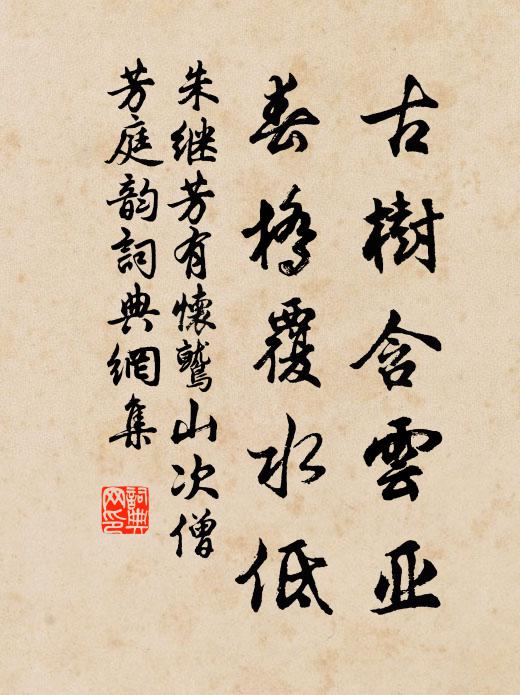 古樹含雲亚
春橋覆水低
朱继芳有懷鷲山次僧
芳庭韵詞典網集
詞典
网印